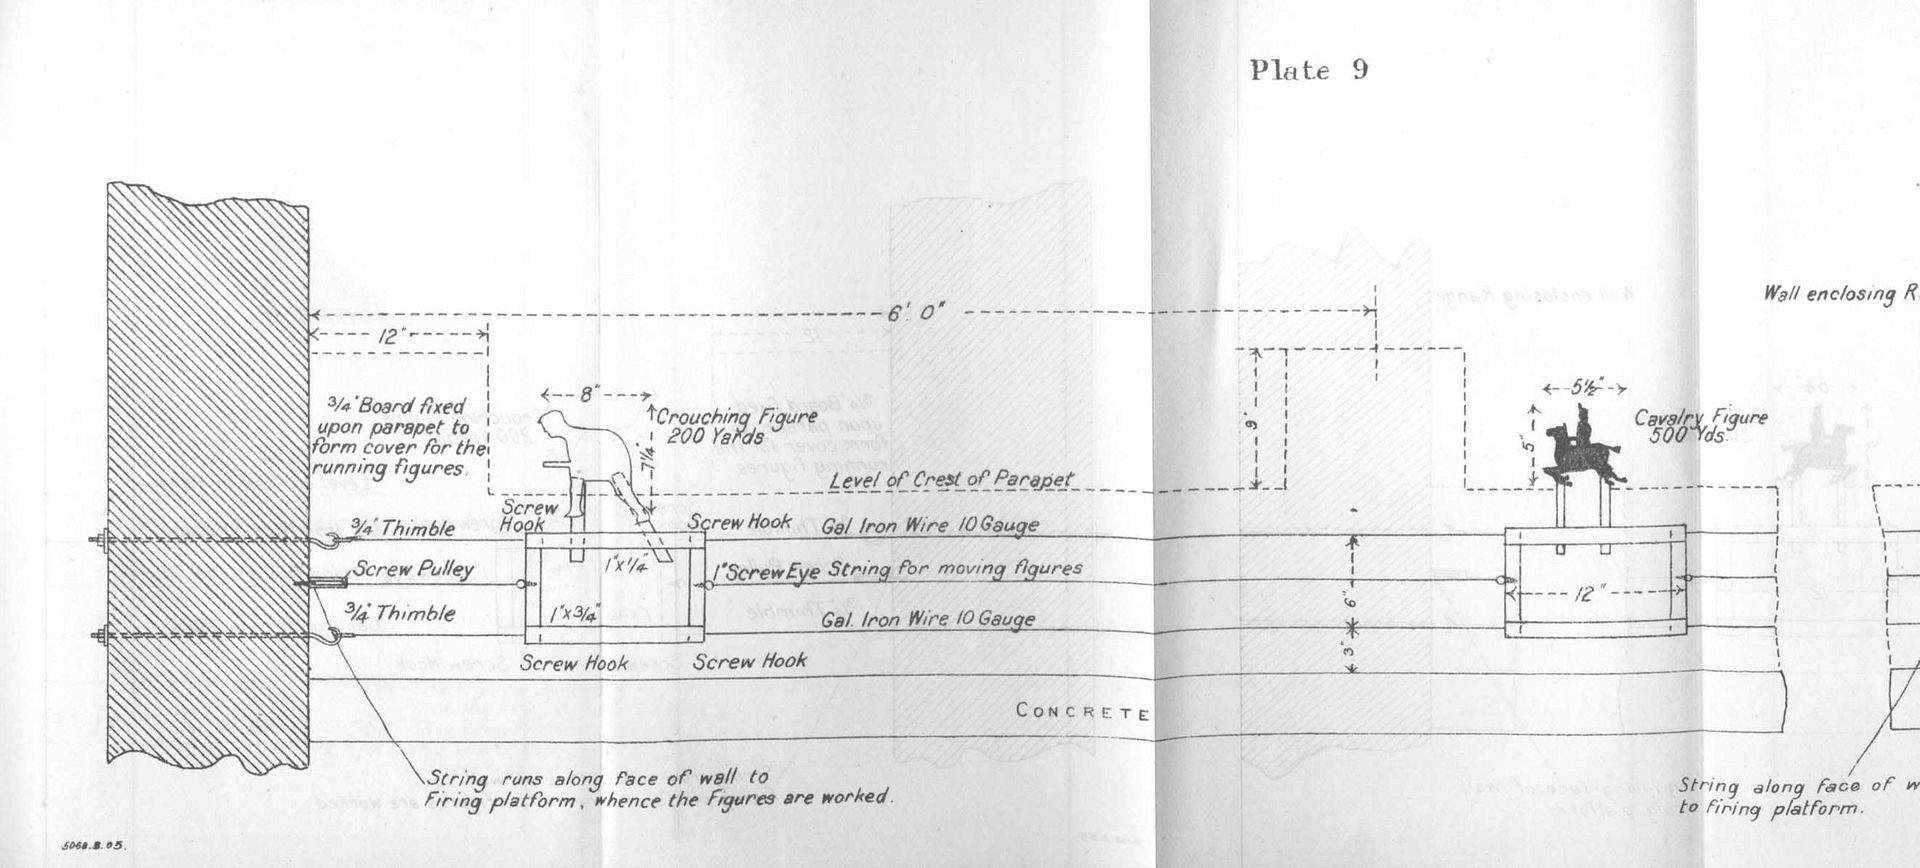 Plate 9
Wall enclosing R
6'. 0"
12"
8"
5½"
¾" Board fixed
upon parapet to
form cover for the
running figures.
Crouching Figure
200 Yards
7¼"
9"
5"
Cavalry Figure
500 Yds.
Level of Crest of Parapet
Screw
Hook
Screw Hook
¾" Thimble
Gal. Iron Wire 10 Gauge
Screw Pulley
1" x ¼"
1" Screw Eye
String for moving figures
12"
¾" Thimble
1" x ¾"
Gal. Iron Wire 10 Gauge
6"
3"
Screw Hook
Screw Hook
CONCRETE
String runs along face of wall to
Firing platform, whence the Figures are worked.
String along face of w
to firing platform.
5068.8.05.